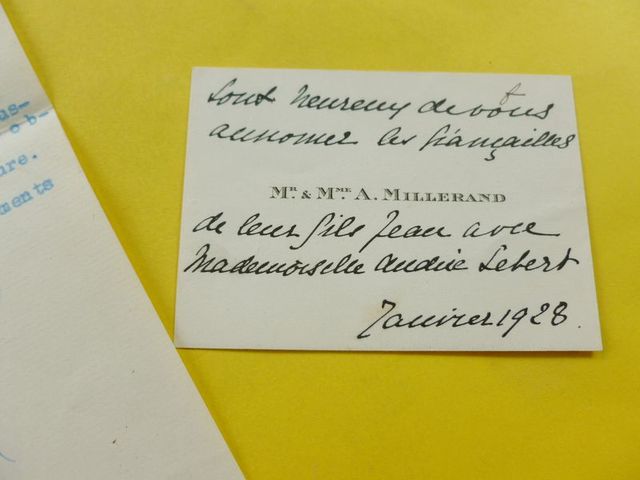 us-
ob-
ure.
ments
sont heureux de vous
annoncer les fiançailles
Mr. & Mme. A. Millerand
de leur fils Jean avec
Mademoiselle Andrée Lebert
Janvier 1928.